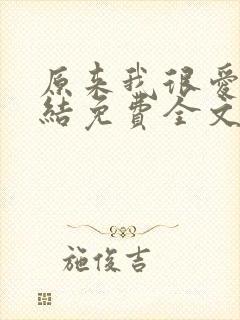 原来我很爱
結免費全文
施俊吉